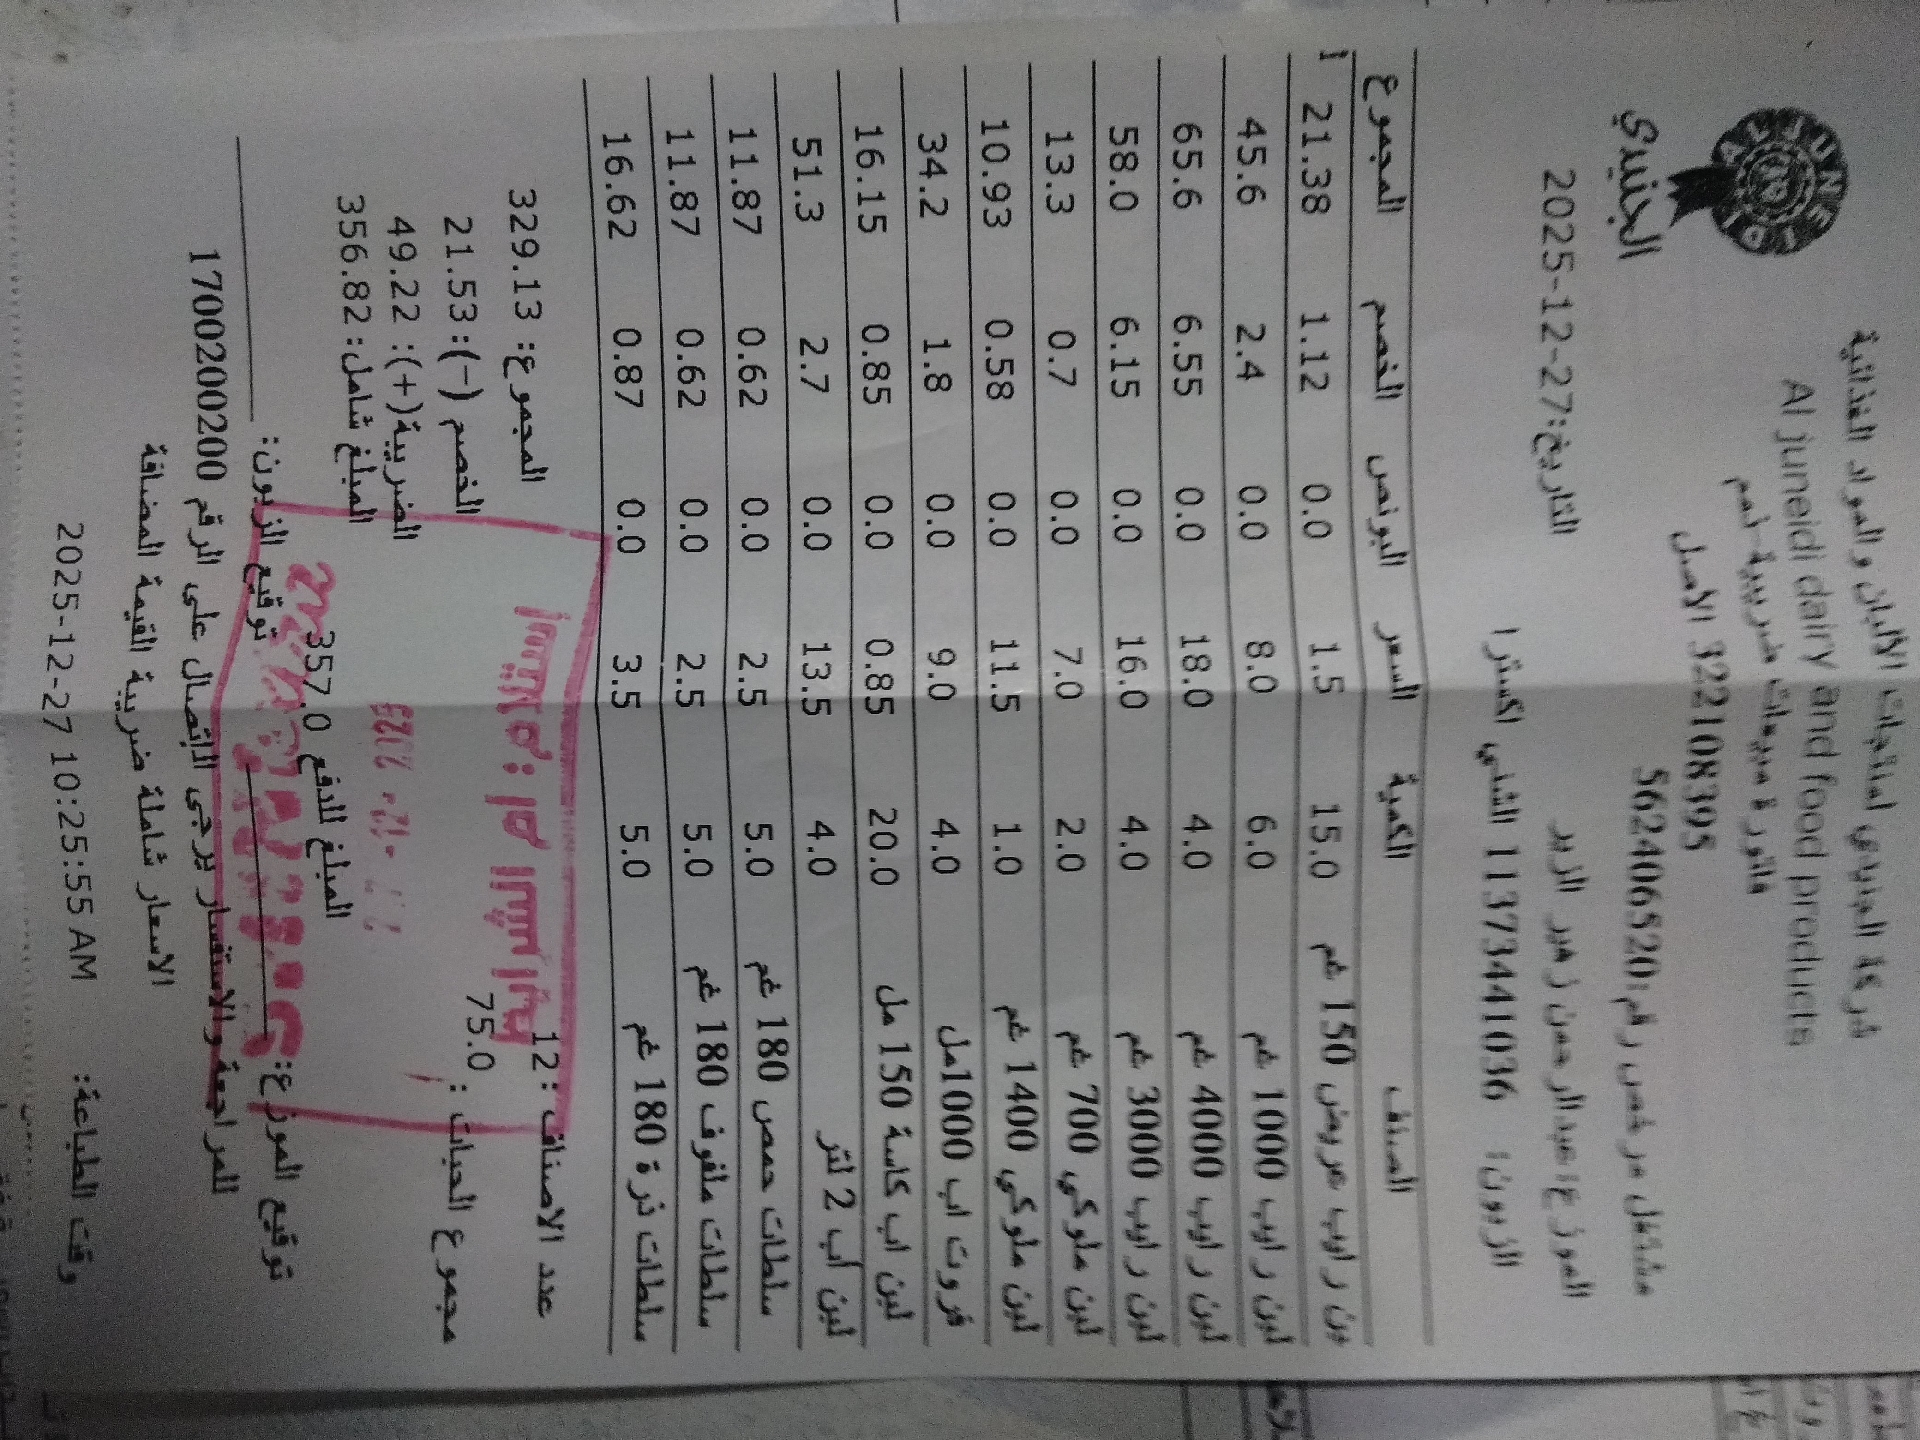 الجنيدي
AL JUNEIDI
شركة الجنيدي لمنتجات الالبان والمواد الغذائية
Al juneidi dairy and food products
فاتورة مبيعات ضريبية-أصم
322108395 الاصل
مشتغل مرخص رقم:562406520
الموزع:عبدالرحمن زهير الزير التاريخ:2025-12-27
الزبون: 1137344036 الشني اكسترا
الصنف الكمية السعر البونص الخصم المجموع
بن رايب عريض 150 غم 15.0 1.5 0.0 1.12 21.38
لبن رايب 1000 غم 6.0 8.0 0.0 2.4 45.6
لبن رايب 4000 غم 4.0 18.0 0.0 6.55 65.6
لبن رايب 3000 غم 4.0 16.0 0.0 6.15 58.0
لبن ملوكي 700 غم 2.0 7.0 0.0 0.7 13.3
لبن ملوكي 1400 غم 1.0 11.5 0.0 0.58 10.93
فروت اب 1000مل 4.0 9.0 0.0 1.8 34.2
لبن اب كاسة 150 مل 20.0 0.85 0.0 0.85 16.15
لبن أب 2 لتر 4.0 13.5 0.0 2.7 51.3
سلطات حمص 180 غم 5.0 2.5 0.0 0.62 11.87
سلطات ملفوف 180 غم 5.0 2.5 0.0 0.62 11.87
سلطات ذرة 180 غم 5.0 3.5 0.0 0.87 16.62
عدد الاصناف :12 المجموع: 329.13
مجموع الحبات : 75.0 الخصم (-): 21.53
الضريبة(+): 49.22
المبلغ شامل: 356.82
المبلغ للدفع 357.0
توقيع الموزع: توقيع الزبون:
للمراجعة والاستفسار يرجى الاتصال على الرقم 1700200200
الاسعار شاملة ضريبة القيمة المضافة
وقت الطباعة: 2025-12-27 10:25:55 AM